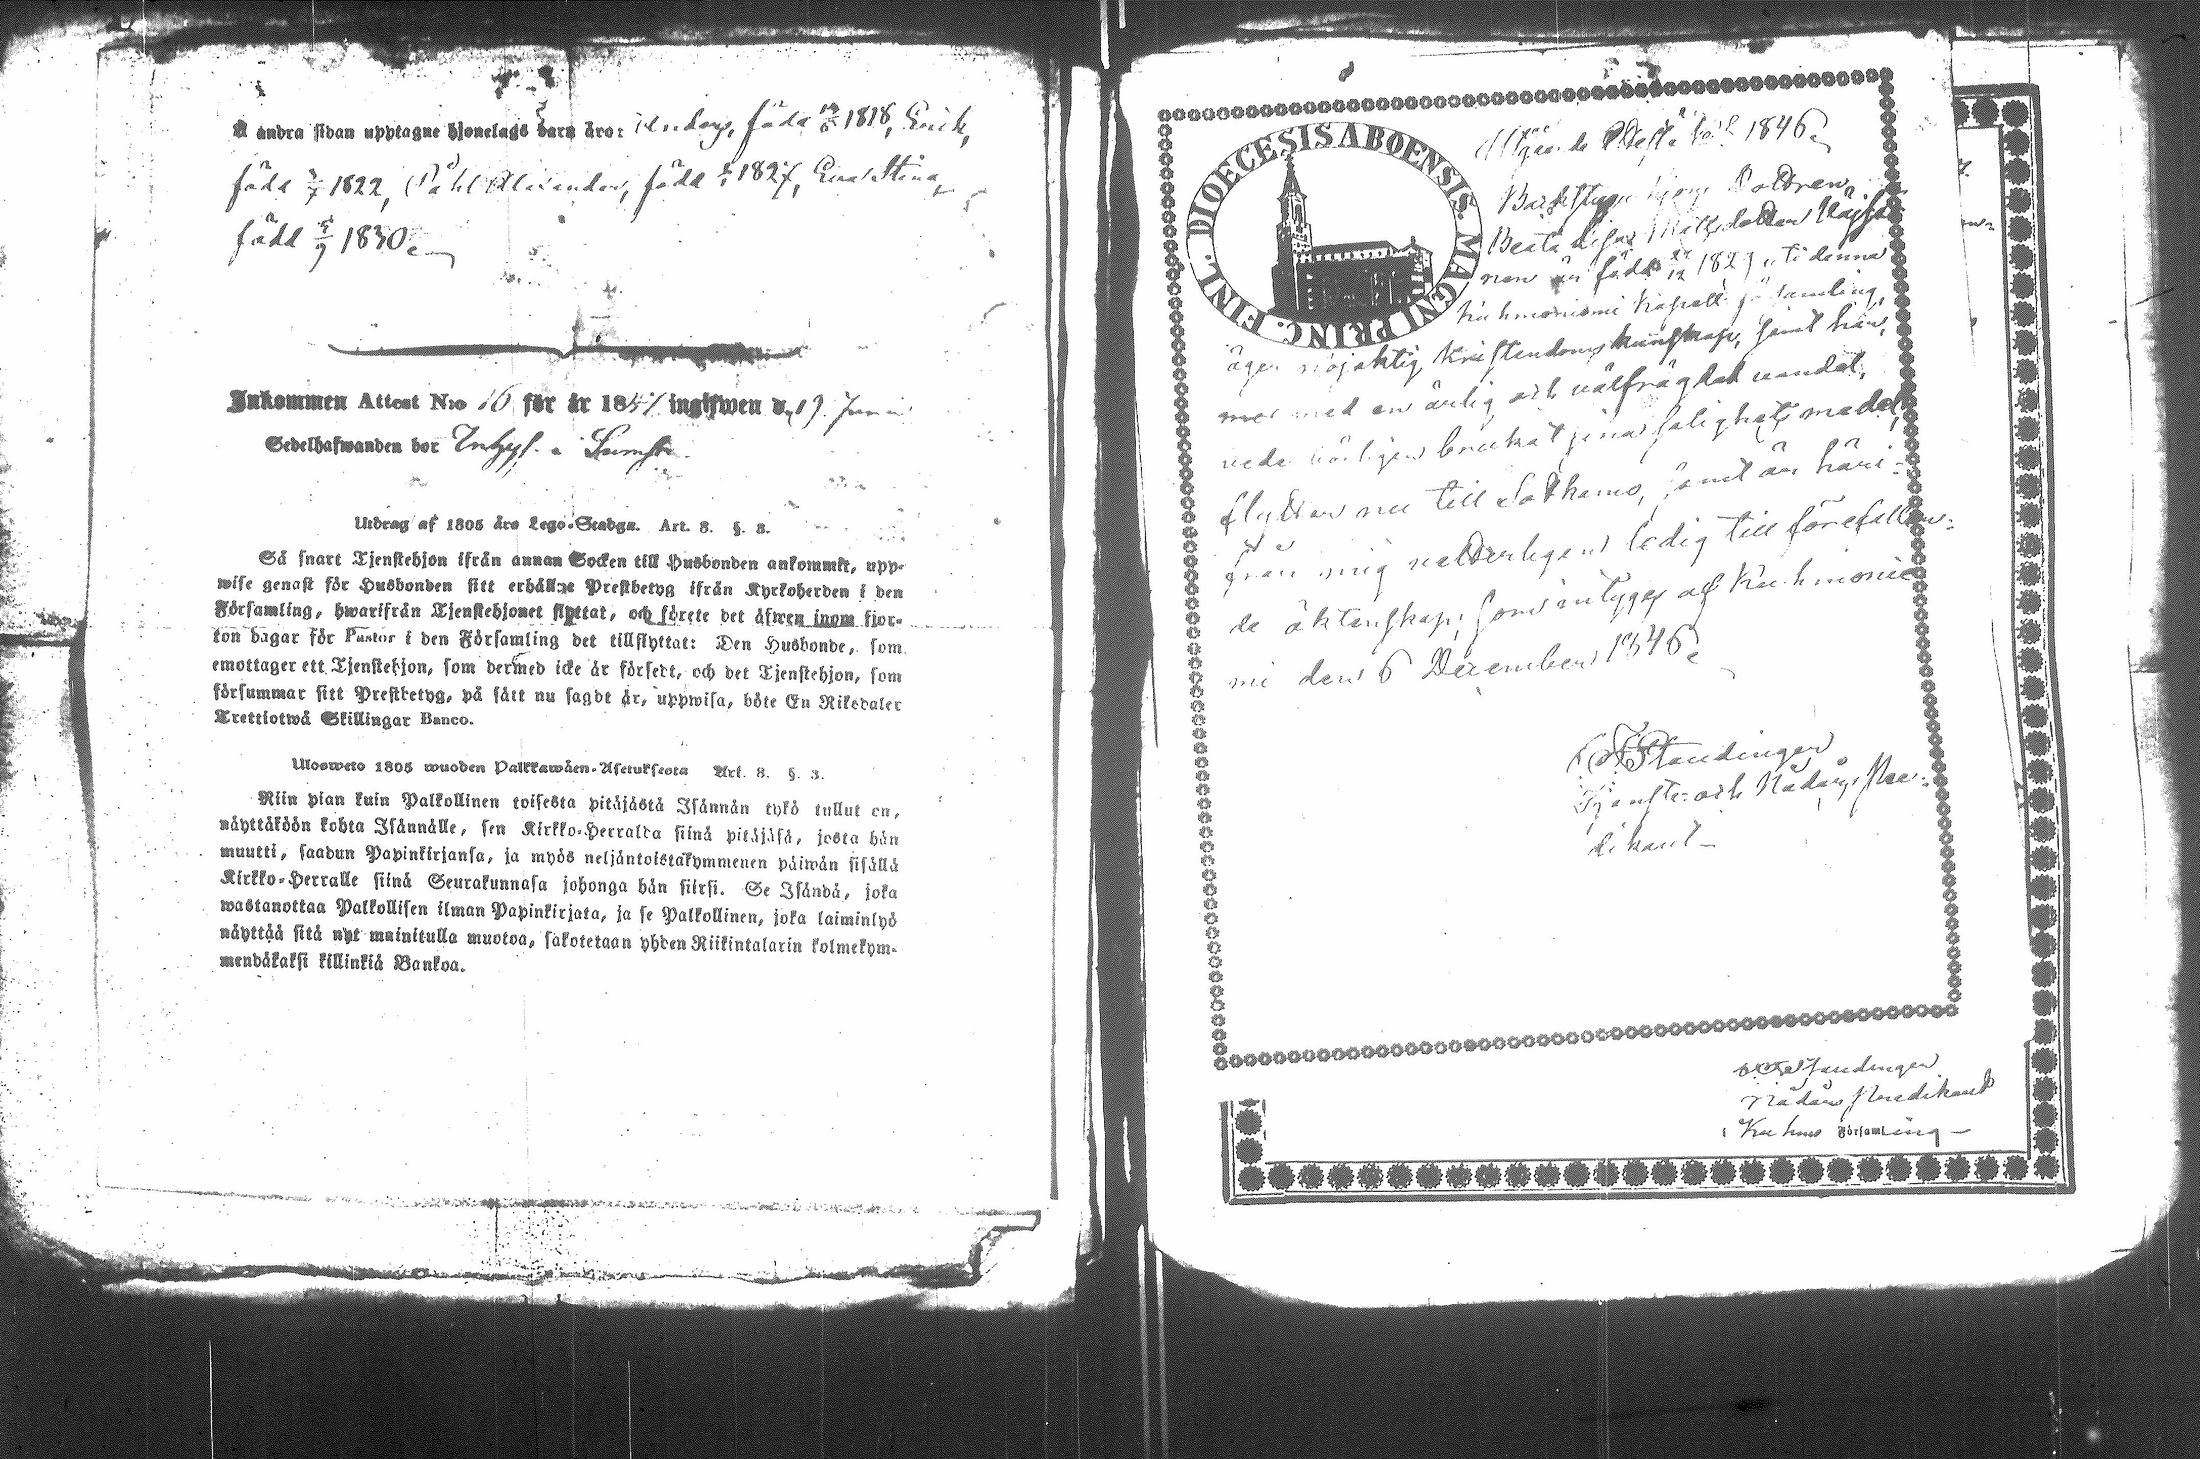 Å andra sidan upptagne hjonelags barn äro: Anders, född 1818, Erick,
född 1822, Påhl Alexander, född 1827, Eva Stina,
född 5/9 1830.
Inkommen Attest N:o 16 för år 18 ingifwen d. 19 Juni
Sedelhafwanden bor
Utdrag af 1805 års Lego-Stadga. Art. 8. §. 3.
Så snart Tjenstehjon ifrån annan Socken till Husbonden ankommit, upp-
wise genast för Husbonden sitt erhållne Prestbetyg ifrån Kyrkoherden i den
Församling, hwarifrån Tjenstehjonet flyttat, och förete det äfwen inom fjor-
ton dagar för Pastor i den Församling det tillflyttat: Den Husbonde, som
emottager ett Tjenstehjon, som dermed icke är försedt, och det Tjenstehjon, som
försummar sitt Prestbetyg, på sätt nu sagdt är, uppwisa, böte En Riksdaler
Trettiotwå Skillingar Banco.
Ulosweto 1805 wuoden Palkkawäen-Asetuksesta Art. 8. §. 3.
Niin pian kuin Palkollinen toisesta pitäjästä Isännän tykö tullut on,
näyttäköön kohta Isännälle, sen Kirkko-Herralda siinä pitäjäsä, josta hän
muutti, saadun Papinkirjansa, ja myös neljäntoistakymmenen päiwän sisällä
Kirkko-Herralle siinä Seurakunnasa johonga hän siirsi. Se Isändä, joka
wastanottaa Palkollisen ilman Papinkirjata, ja se Palkollinen, joka laiminlyö
näyttää sitä nyt mainitulla muotoa, sakotetaan yhden Riikintalarin kolmekym-
mendäkaksi killinkiä Bankoa.
DIOECESIS ABOENSIS. MAGNI PRINC. FINL.
1846
Dottren
Beata Lisa
nen är född 22/12 182 uti denna
Kuhmoniemi Kapell församling,
äger nöjaktig Kristendomskunskap, samt har,
med en ärlig och välfrägdad vandel,
brukat sina salighets medel,
flyttar nu till Sotkamo, samt är häri-
från mig ledig till förefallan-
de äktenskap, som intygas af Kuhmonie-
mi den 6 December 1846
Standinger
Tjenste- och Nådårs Præ-
dikant
Standinger
Nådårs Predikant
i Kuhmo Församling